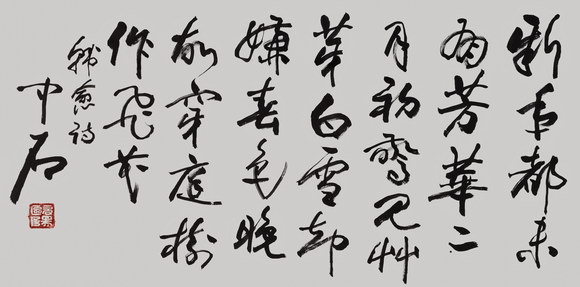 新年都未
有芳華二
月初驚見艸
芽白雪却
嫌春色晚
故穿庭樹
作飛花
韓愈詩
中石